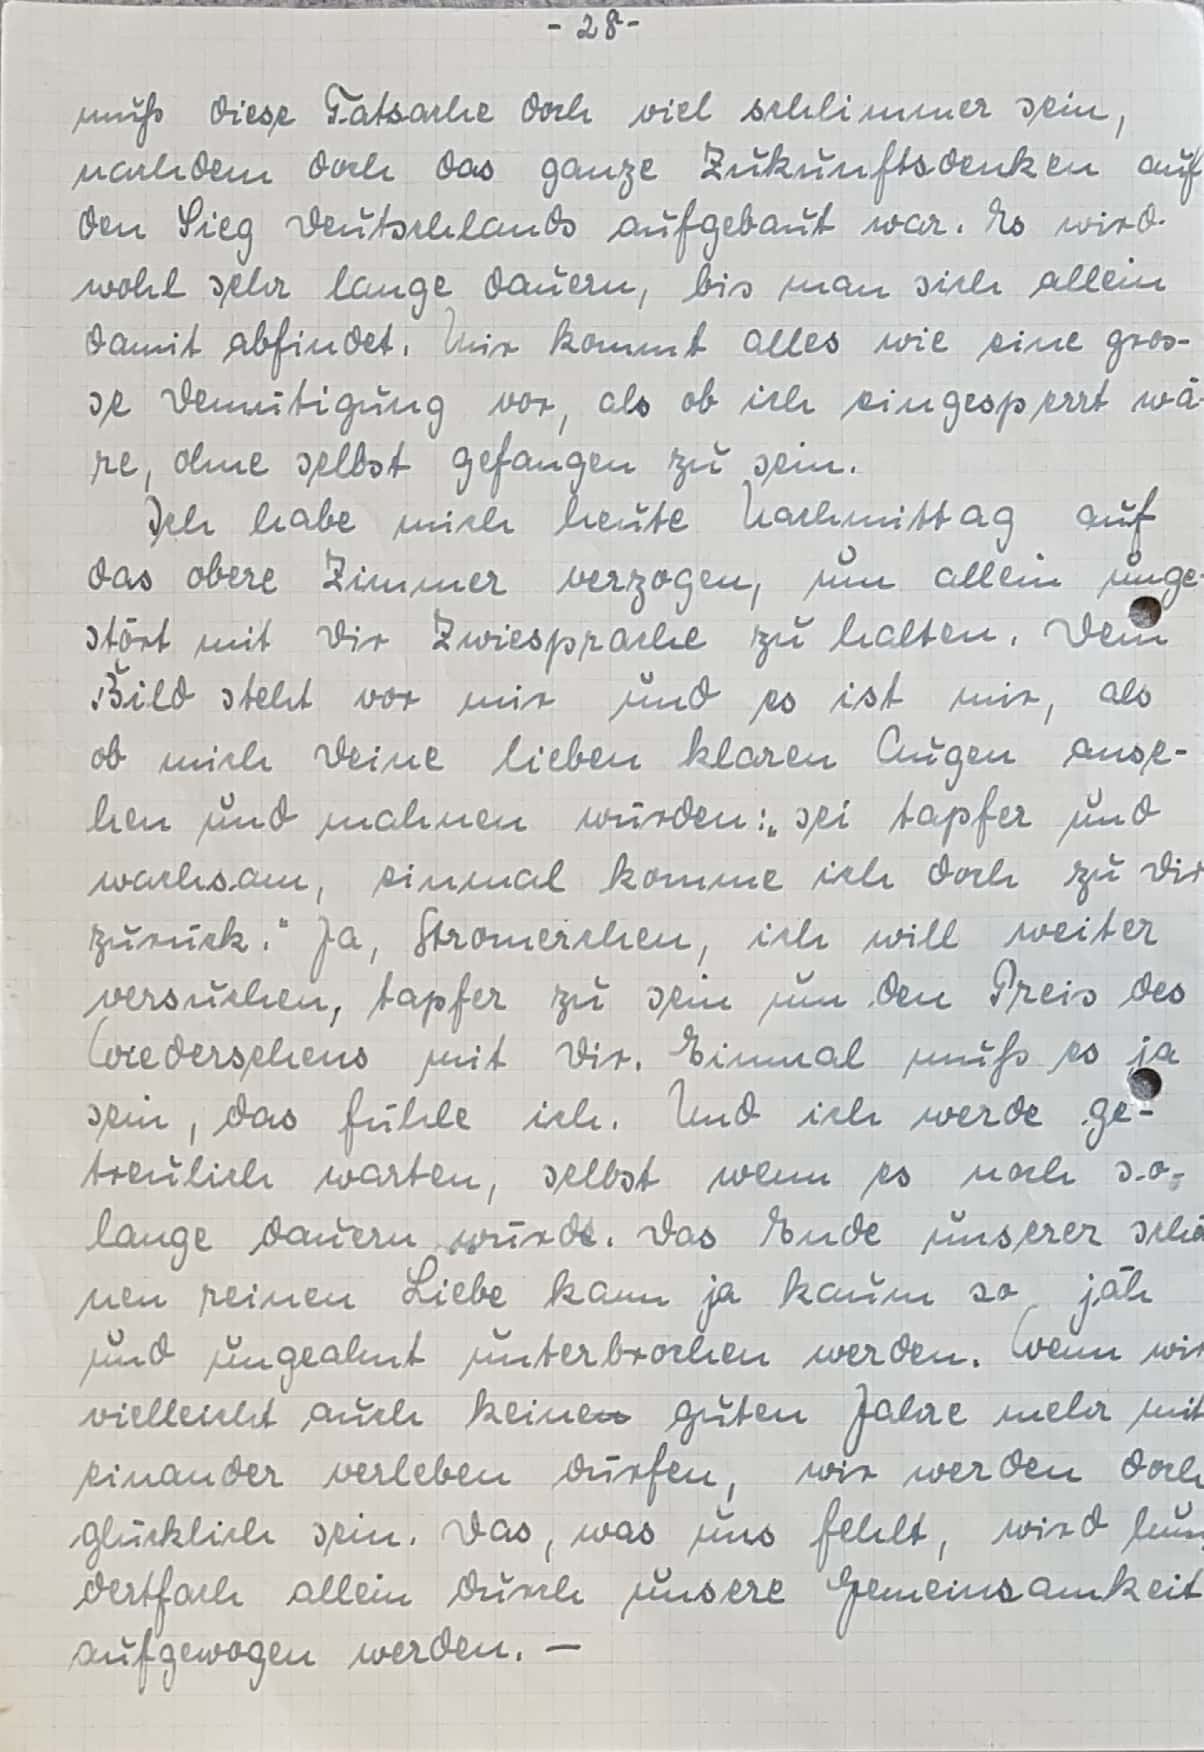 - 28 -
muß diese Tatsache doch viel schlimmer sein,
nachdem doch das ganze Zukunftsdenken auf
den Sieg Deutschlands aufgebaut war. Es wird
wohl sehr lange dauern, bis man sich allein
damit abfindet. Mir kommt alles wie eine gros-
se Demütigung vor, als ob ich eingesperrt wä-
re, ohne selbst gefangen zu sein.
Ich habe mich heute Nachmittag auf
das obere Zimmer verzogen, um allein unge-
stört mit Dir Zwiesprache zu halten. Dein
Bild steht vor mir und es ist mir, als
ob mich Deine lieben klaren Augen anse-
hen und mahnen würden: „sei tapfer und
wachsam, einmal komme ich doch zu Dir
zurück." Ja, Stromerchen, ich will weiter
versuchen, tapfer zu sein um den Preis des
Wiedersehens mit Dir. Einmal muß es ja
sein, das fühle ich. Und ich werde ge-
treulich warten, selbst wenn es noch so-
lange dauern würde. Das Ende unserer schö
nen reinen Liebe kann ja kaum so jäh
und ungeahnt unterbrochen werden. Wenn wir
vielleicht auch keinen guten Jahre mehr mit
einander verleben dürfen, wir werden doch
glücklich sein. Das, was uns fehlt, wird hun
dertfach allein durch unsere Gemeinsamkeit
aufgewogen werden. —